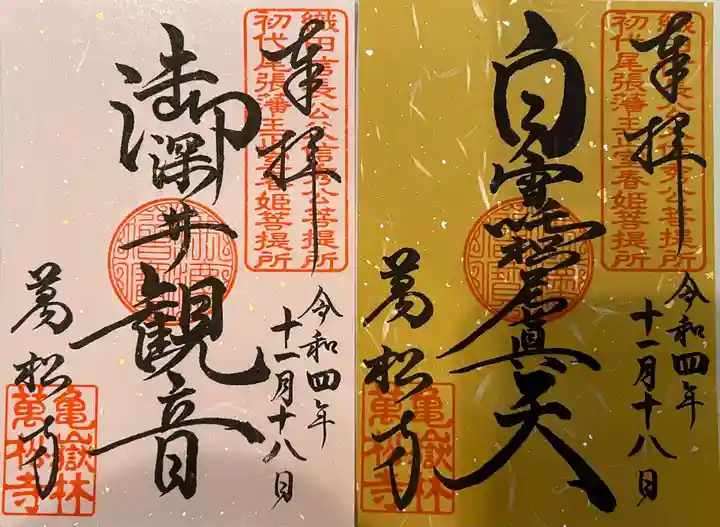 織田信長公父信秀公菩提所
初代尾張藩主正室春姫菩提所
奉拝
御深井観音
令和四年
十一月十八日
萬松寺
亀嶽林
萬松寺
織田信長公父信秀公菩提所
初代尾張藩主正室春姫菩提所
奉拝
白雪吒枳尼眞天
令和四年
十一月十八日
萬松寺
亀嶽林
萬松寺